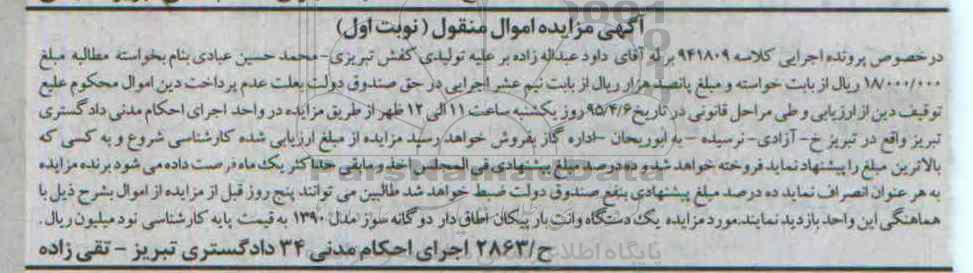 آگهی مزایده اموال منقول (نوبت اول)
درخصوص پرونده اجرایی کلاسه ۹۴۱۸۰۹ برله آقای داود عبداله زاده بر علیه تولیدی کفش تبریزی- محمد حسین عبادی بنام بخواسته مطالبه مبلغ
۱۸/۰۰۰/۰۰۰ ریال از بابت خواسته و مبلغ پانصد هزار ریال از بابت نیم عشر اجرایی در حق صندوق دولت بعلت عدم پرداخت دین اموال محکوم علیه
توقیف دین از ارزیابی و طی مراحل قانونی در تاریخ ۹۵/۴/۶ روز یکشنبه ساعت ۱۱ الی ۱۲ ظهر از طریق مزایده در واحد اجرای احکام مدنی دادگستری
تبریز واقع در تبریز خ- آزادی- نرسیده - به ابوریحان -اداره گاز بفروش خواهد رسید مزایده از مبلغ ارزیابی شده کارشناسی شروع و به کسی که
بالاترین مبلغ را پیشنهاد نماید فروخته خواهد شد و ده درصد مبلغ پیشنهادی فی المجلس اخذ و مابقی حداکثر یک ماه فرصت داده می شود برنده مزایده
به هر عنوان انصراف نماید ده درصد مبلغ پیشنهادی بنفع صندوق دولت ضبط خواهد شد طالبین می توانند پنج روز قبل از مزایده از اموال بشرح ذیل با
هماهنگی این واحد بازدید نمایند.مورد مزایده یک دستگاه وانت بار پیکان اطاق دار دوگانه سوز مدل ۱۳۹۰ به قیمت پایه کارشناسی نود میلیون ریال.
ح/۲۸۶۳ اجرای احکام مدنی ۳۴ دادگستری تبریز - تقی زاده